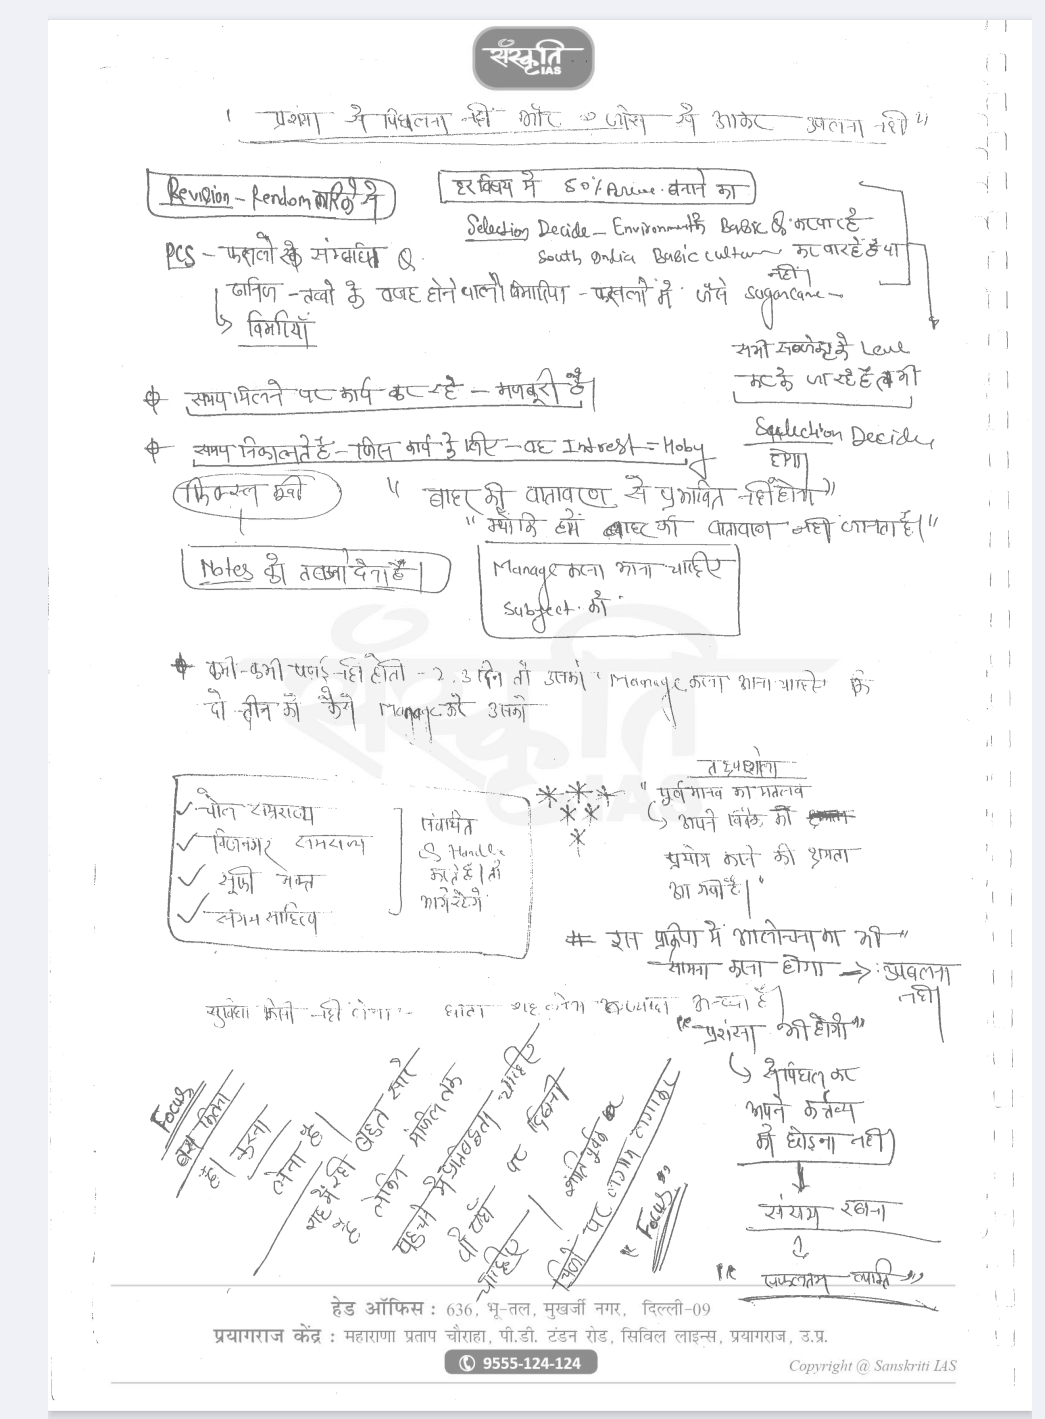 संस्कृति
IAS
" प्रशंसा से पिघलना नहीं और जोश में आकर उबलना नहीं "
Revision - Rendom तरिके से
हर विषय में 50% Arive. बनाने का
Selection Decide - Environment के Basic Q. करवा रहे
South India Basic culture करवा रहे है या
नहीं।
PCS - फसलों के संम्बधित Q.
खनिज - तत्वों के वजह होने वाली बिमारिया - फसलों में जैसे Sugarcane -
बिमारियाँ
सभी सब्जेक्ट के Level
करके जा रहे हैं तभी
Selection Decide
होगा
समय मिलने पर कार्य कर रहे - मजबूरी है।
समय निकालते हैं - जिस कार्य के लिए - वह Intrest = Hoby
फिक्स्ल करो
" बाहर की वातावरण से प्रभावित नहीं होगे "
" क्यों कि हमें बाहर की वातावरण नहीं जानता है। "
Notes को तवज्जो देना है।
Manage करना आना चाहिए
Subject. को
कभी-कभी पढ़ाई नहीं होती - 2, 3 दिन तो उसको Manage करना आना चाहिए कि
दो तीन को कैसे Manage करे उसको
चोल साम्राज्य
विजनगर साम्राज्य
सूफी भक्त
संगम साहित्य
संबंधित
Q Handle
करते है। तो
आगे रहेगे
तक्षशिला
" पूर्वमानव का मतलब
अपने विवेक की
प्रयोग करने की क्षमता
आ गयी है। "
# इस प्रक्रिया में आलोचना का भी "
सामना करना होगा → उबलना
नहीं
सुविधा भोगी नहीं होना - अच्छा है।
" प्रशंसा भी होगी "
से पिघल कर
अपने कर्त्तव्य
को छोड़ना नहीं।
संयम रखना
" सफलतम व्यक्ति "
Focus
बस किला
है। करना
लेना है।
राह में रही बहुत सारे
है लेकिन मंजिल तक
पहुचने में प्रतिबद्धता चाहिए
वो वर्षा पर दिखनी
चाहिए। शांति पूर्वक
चित्तों पर लगाम लगाकर
" Focus "
हेड ऑफिस : 636, भू-तल, मुखर्जी नगर, दिल्ली-09
प्रयागराज केंद्र : महाराणा प्रताप चौराहा, पी.डी. टंडन रोड, सिविल लाइन्स, प्रयागराज, उ.प्र.
9555-124-124
Copyright @ Sanskriti IAS